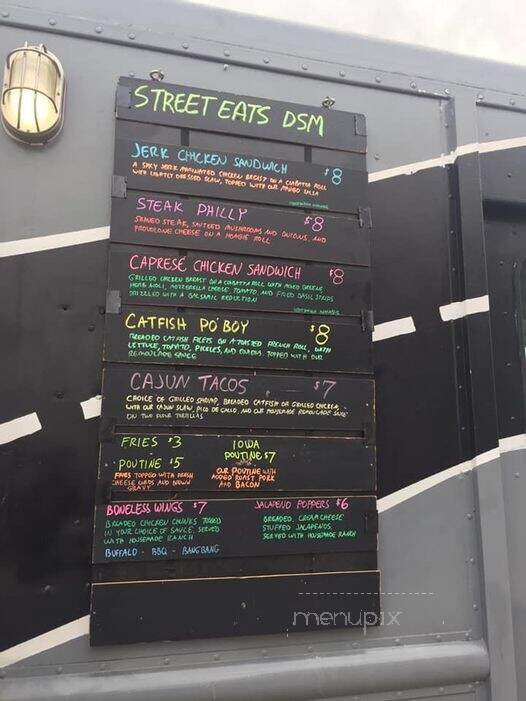 STREET EATS DSM
JERK CHICKEN SANDWICH $8
A SPICY JERK MARINATED CHICKEN BREAST ON A CIABATTA ROLL
WITH LIGHTLY DRESSED SLAW, TOPPED WITH OUR MANGO SALSA
STEAK PHILLY $8
SHAVED STEAK, SAUTEED MUSHROOMS AND ONIONS, AND
PROVOLONE CHEESE ON A HOAGIE ROLL
CAPRESE CHICKEN SANDWICH $8
GRILLED CHICKEN BREAST ON A CIABATTA ROLL WITH MIXED GREENS
HERB AIOLI, MOZZERELLA CHEESE, TOMATO, AND FRIED BASIL
DRIZZLED WITH A BALSAMIC REDUCTION
CATFISH PO'BOY $8
BREADED CATFISH FILETS ON A TOASTED FRENCH ROLL, WITH
LETTUCE, TOMATO, PICKLES, AND ONIONS. TOPPED WITH OUR
REMOULADE SAUCE
CAJUN TACOS $7
CHOICE OF GRILLED SHRIMP, BREADED CATFISH OR GRILLED CHICKEN
WITH OUR CAJUN SLAW, PICO DE GALLO, AND OUR HOMEMADE REMOULADE SAUCE
ON TWO FLOUR TORTILLAS
FRIES $3
POUTINE $5
FRIES TOPPED WITH FRESH
CHEESE CURDS AND BROWN
GRAVY
IOWA
POUTINE $7
OUR POUTINE WITH
ADDED ROAST PORK
AND BACON
BONELESS WINGS $7
BREADED CHICKEN CHUNKS TOSSED
IN YOUR CHOICE OF SAUCE. SERVED
WITH HOMEMADE RANCH
BUFFALO - BBQ - BANGBANG
JALAPENO POPPERS $6
BREADED, CREAM CHEESE
STUFFED JALAPENOS.
SERVED WITH HOMEMADE RANCH
menupix